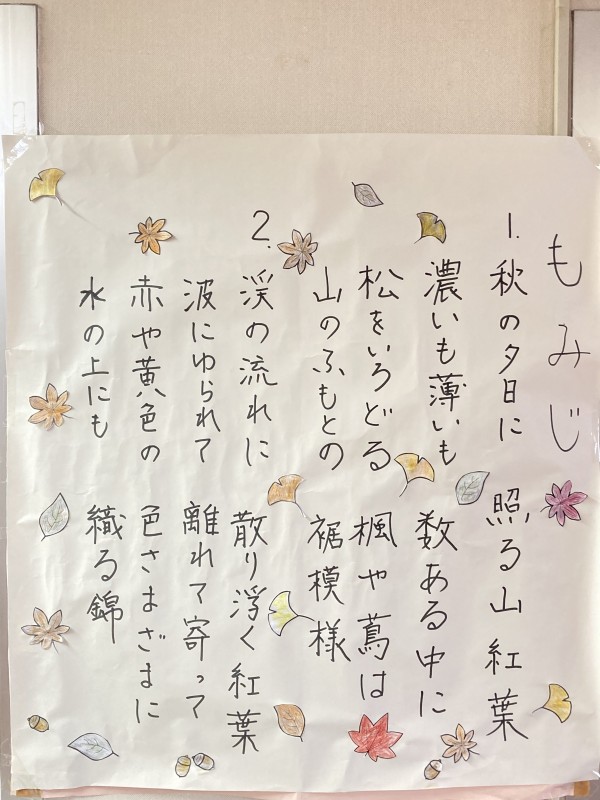 もみじ
1. 秋の夕日に 照る山 紅葉
濃いも薄いも 数ある中に
松をいろどる 楓や蔦は
山のふもとの 裾模様
2. 渓の流れに 散り浮く紅葉
波にゆられて 離れて寄って
赤や黄色の 色さまざまに
水の上にも 織る錦